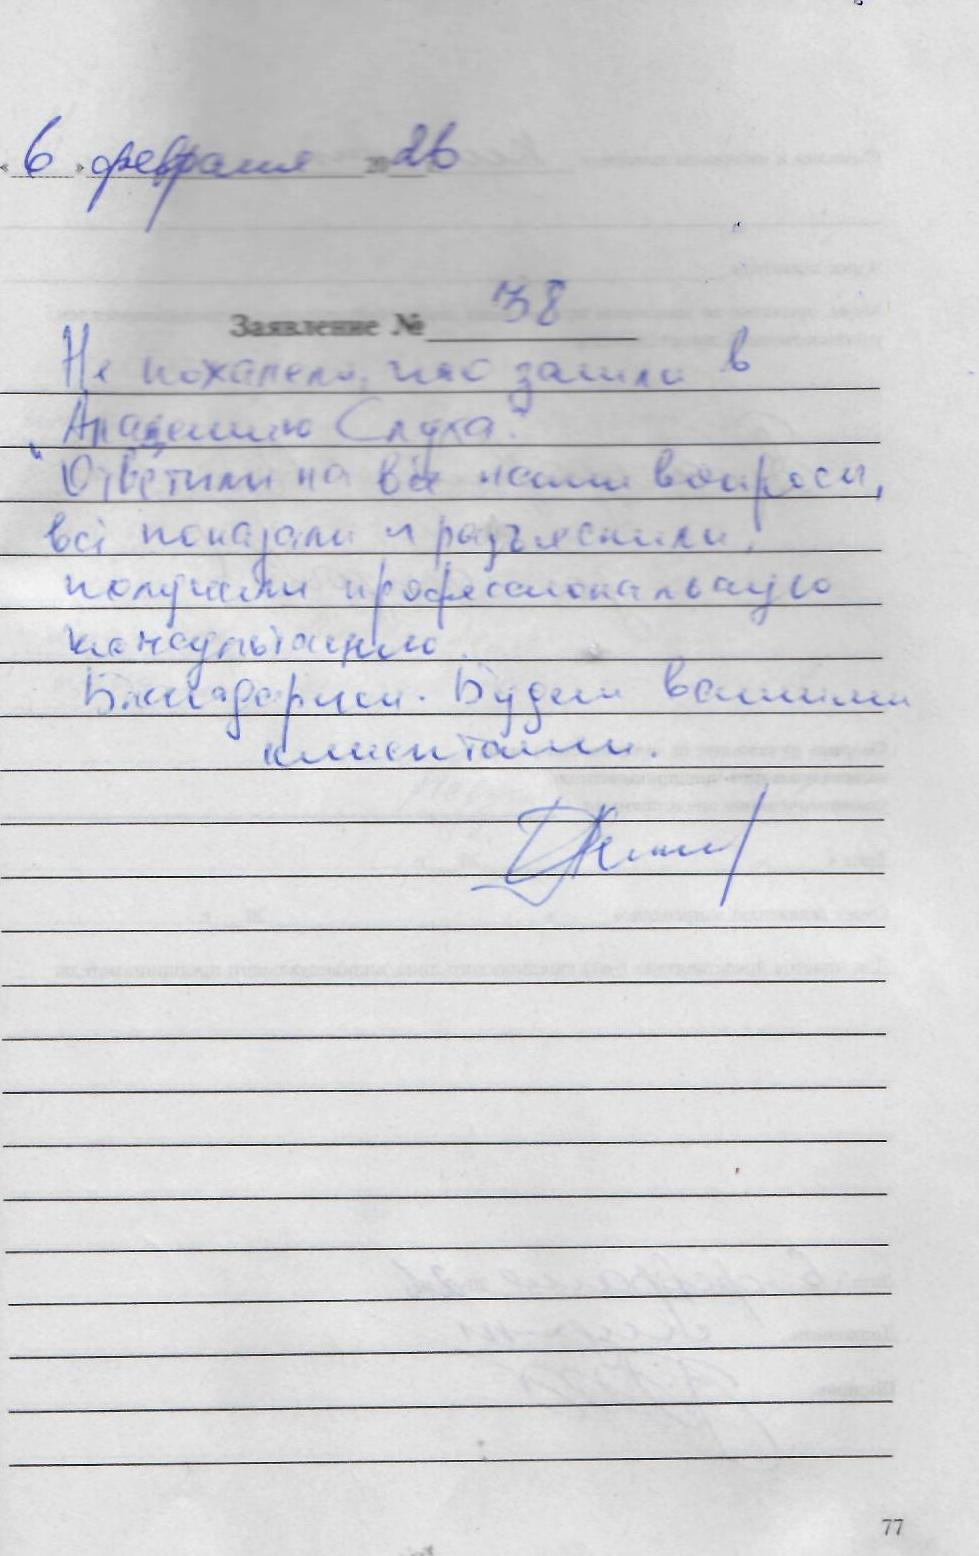 « 6 » февраля 20 26
Заявление № 38
Не пожалели, что зашли в
"Академию Слуха".
Ответили на все наши вопросы,
всё показали и разъяснили,
получили профессиональную
консультацию.
Благодарим. Будем вашими
клиентами.
77